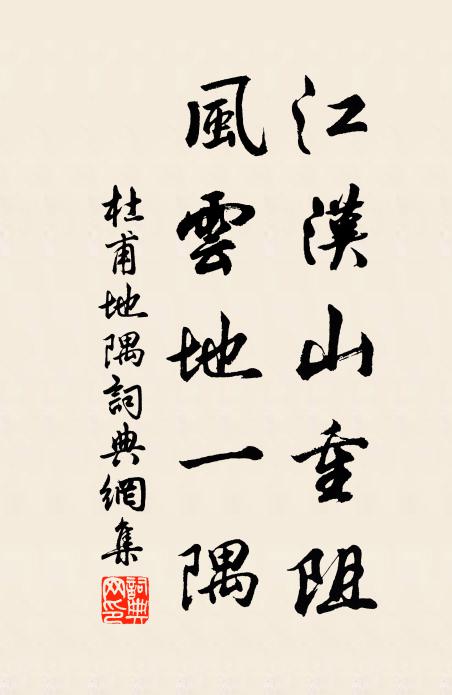 江漢山重阻
風雲地一隅
杜甫地隅詞典網集
詞典
网印